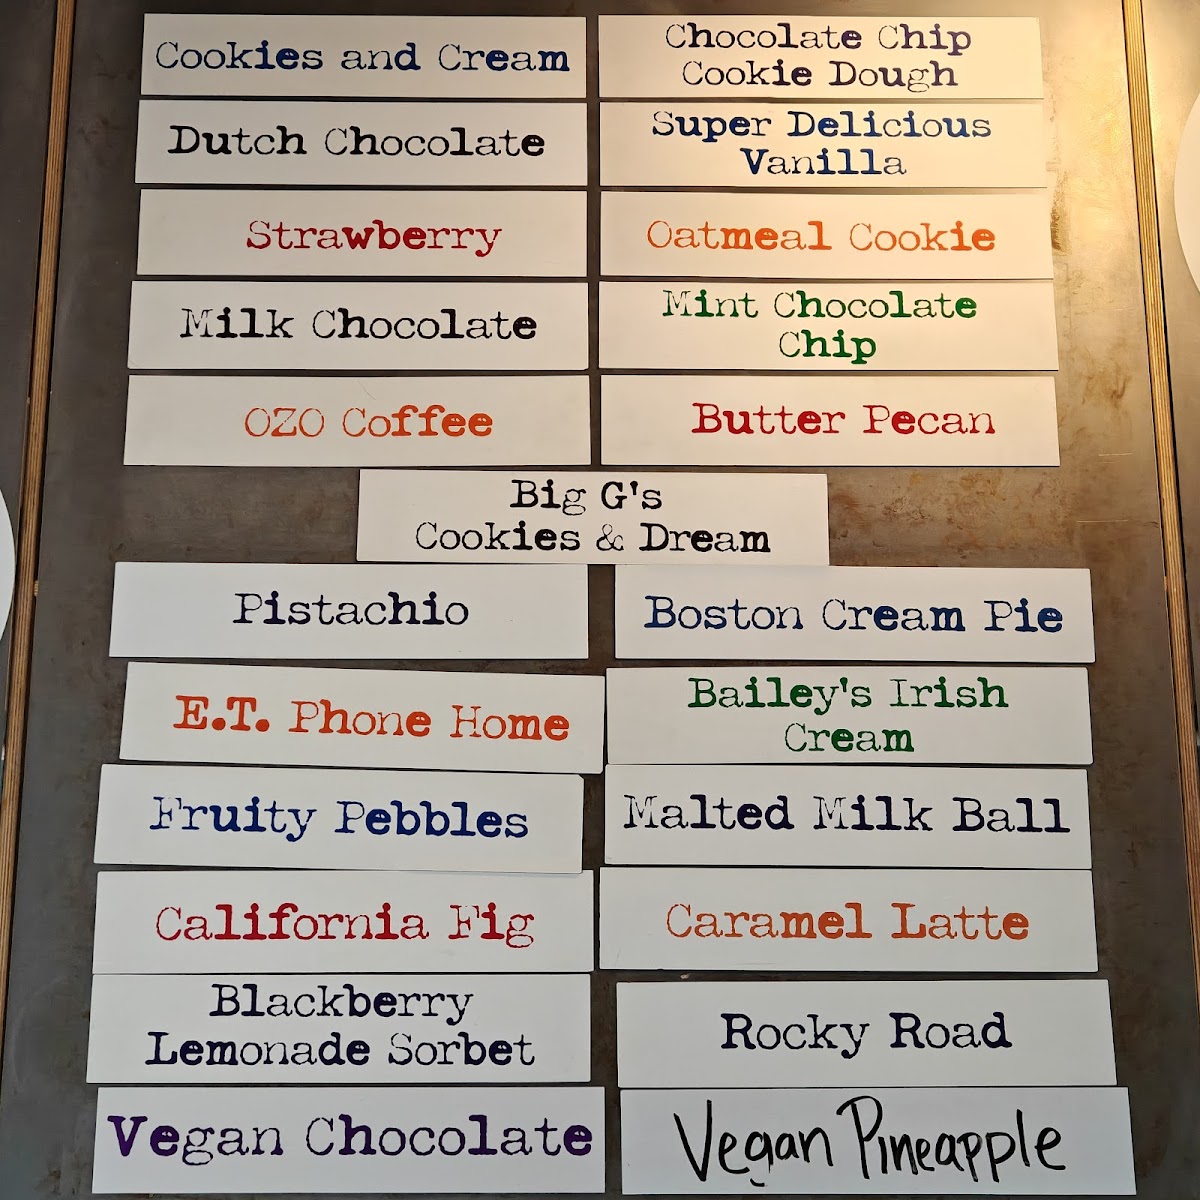 Cookies and Cream
Chocolate Chip
Cookie Dough
Dutch Chocolate
Super Delicious
Vanilla
Strawberry
Oatmeal Cookie
Milk Chocolate
Mint Chocolate
Chip
OZO Coffee
Butter Pecan
Big G's
Cookies & Dream
Pistachio
Boston Cream Pie
E.T. Phone Home
Bailey's Irish
Cream
Fruity Pebbles
Malted Milk Ball
California Fig
Caramel Latte
Blackberry
Lemonade Sorbet
Rocky Road
Vegan Chocolate
Vegan Pineapple